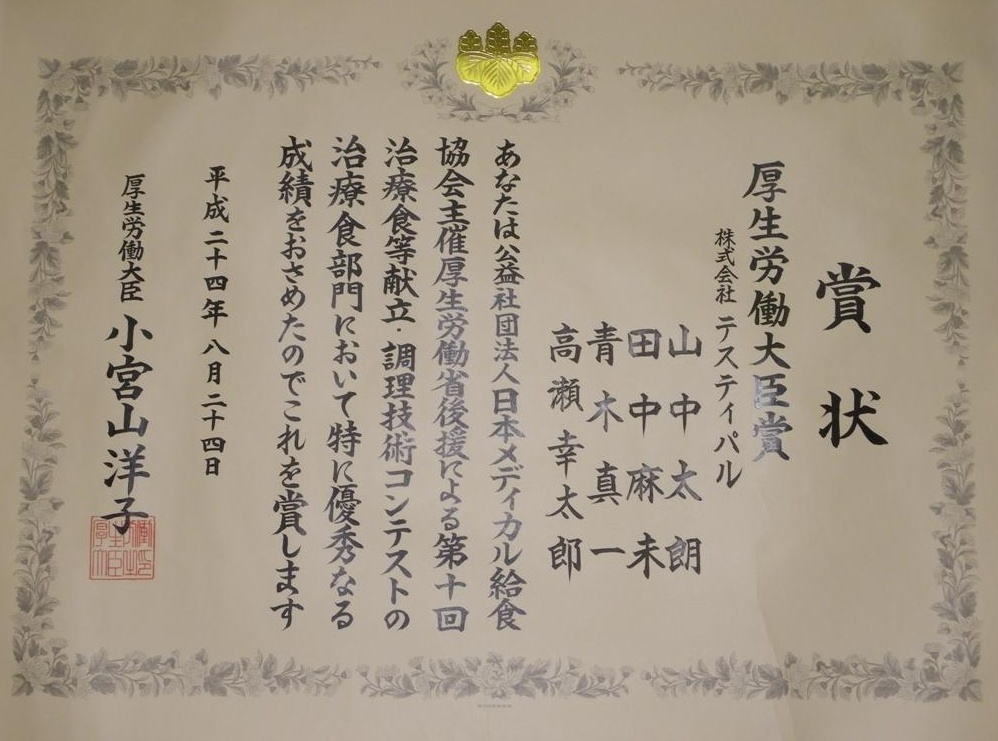 賞状
厚生労働大臣賞
株式会社 テスティパル
山中太朗
田中麻未
青木真一
高瀬幸太郎
あなたは公益社団法人日本メディカル給食
協会主催厚生労働省後援による第十回
治療食等献立・調理技術コンテストの
治療食部門において特に優秀なる
成績をおさめたのでこれを賞します
平成二十四年八月二十四日
厚生労働大臣 小宮山洋子